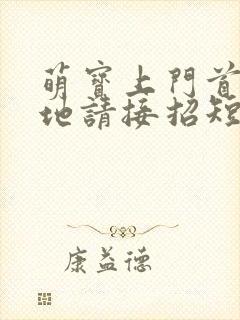 萌寶上門首
地請接招短
康益德